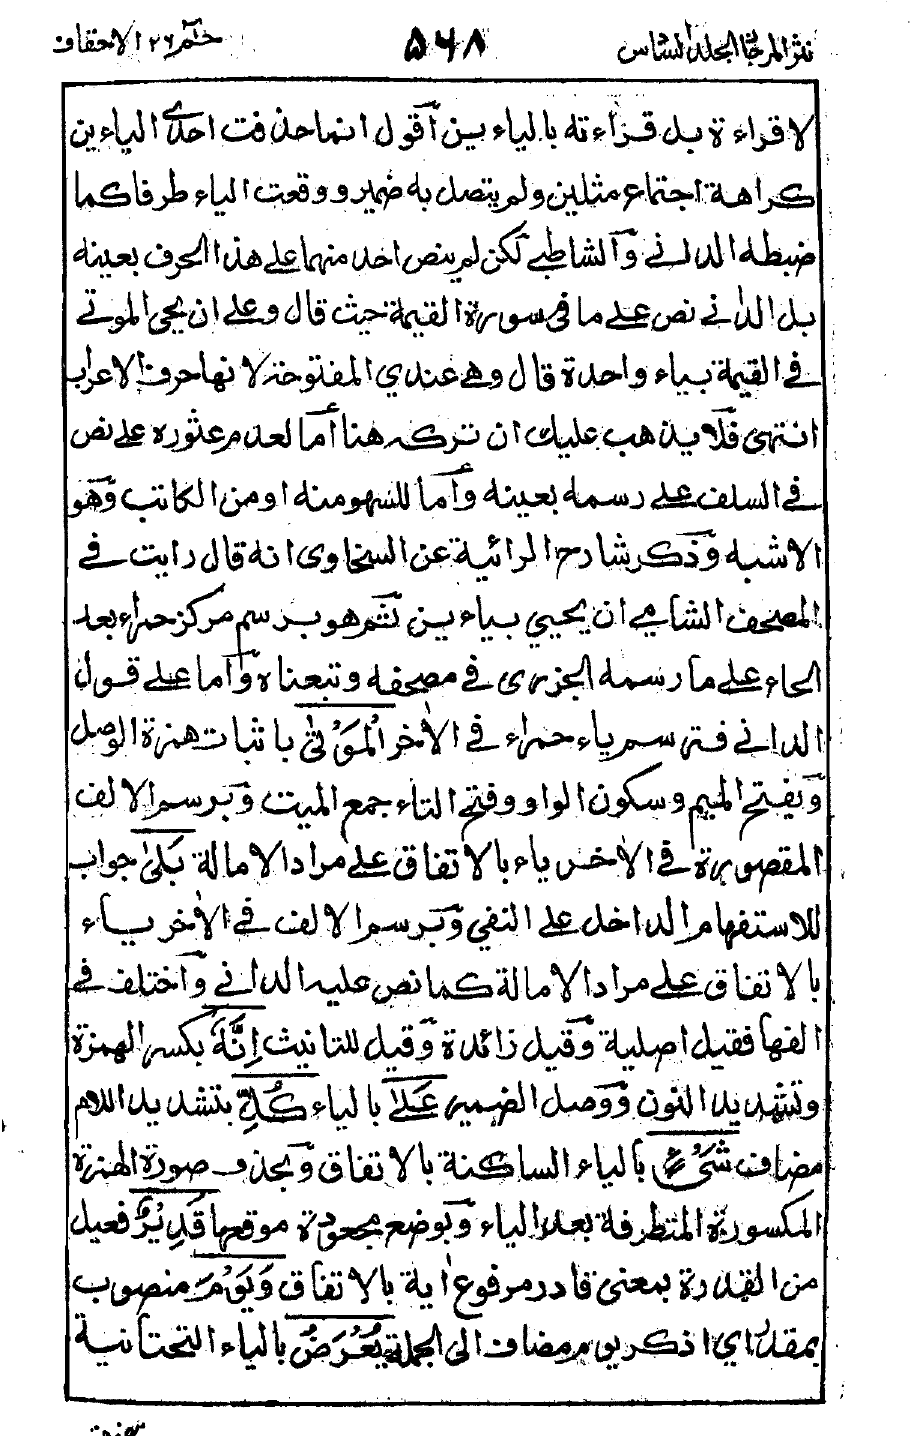 نثر المرجان المجلد السادس ٥٤٨ حٰم ٢٦ الاحقاف
لا قراءة بل قراءته بالياءين أقول انما حذفت احدى الياءين
كراهة اجتماع مثلين ولم يتصل به ضمير ووقعت الياء طرفا كما
ضبطه الدانى والشاطبى لكن لم ينص احد منهما على هذا الحرف بعينه
بل الدانى نص على ما فى سورة القيمة حيث قال وعلى ان يحى الموتى
فى القيمة بياء واحدة قال وهى عندي المفتوحة لانها حرف الاعراب
انتهى فلا يذهب عليك ان تركه هنا أما لعدم عثوره على نص
فى السلف على رسمه بعينه وأما للسهو منه او من الكاتب وهو
الاشبه وذكر شارح الرائية عن السخاوى انه قال رايت فى
المصحف الشامى ان يحيي بياءين ثم هو برسم مركز حمراء بعد
الحاء على ما رسمه الجزرى فى مصحفه وتبعناه وأما على قول
الدانى فترسم ياء حمراء فى الأخر الْمَوْتٰى باثبات همزة الوصل
وبفتح الميم وسكون الواو وفتح التاء جمع الميت وبرسم الالف
المقصورة فى الأخر ياء بالاتفاق على مراد الامالة بَلٰى جواب
للاستفهام الداخل على النفي وبرسم الالف فى الأخر بياء
بالاتفاق على مراد الامالة كما نص عليه الدانى واختلف فى
الفها فقيل اصلية وقيل زائدة وقيل للتانيث اِنَّهٗ بكسر الهمزة
وتشديد النون ووصل الضمير عَلٰى بالياء كُلِّ بتشديد اللام
مضاف شَىْءٍ بالياء الساكنة بالاتفاق وبحذف صورة الهمزة
المكسورة المتطرفة بعد الياء وبوضع مجعودة موقعها قَدِيْرٌ فعيل
من القدرة بمعنى قادر مرفوع اٰية بالاتفاق وَيَوْمَ منصوب
بمقدر اي اذكر يوم مضاف الى الجملة يُعْرَضُ بالياء التحتانية